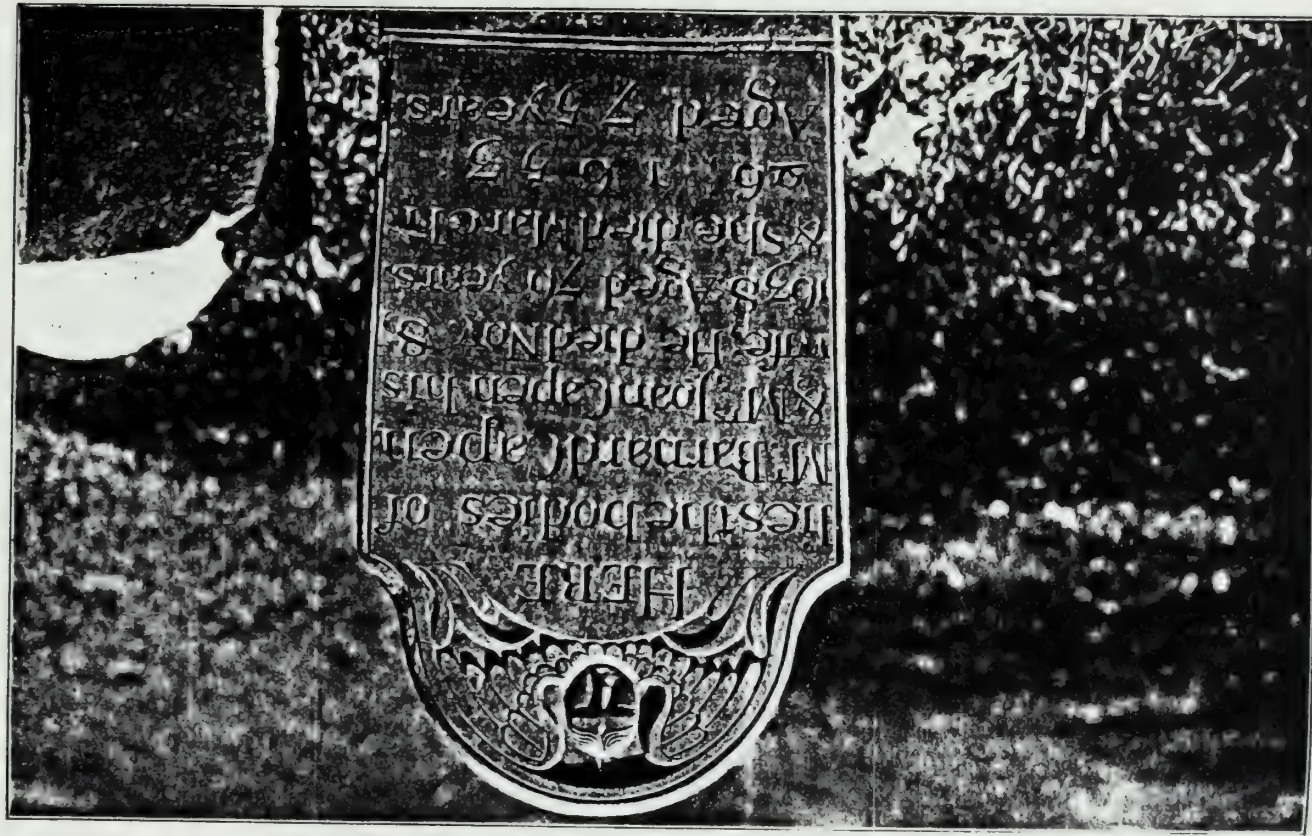 HERE
lies the bodies of
Mr Barnard Capen
& Mrs Joan Capen his
wife He died Nov 8
1638 Aged 76 years
& She died March
26 1653
Aged 75 years